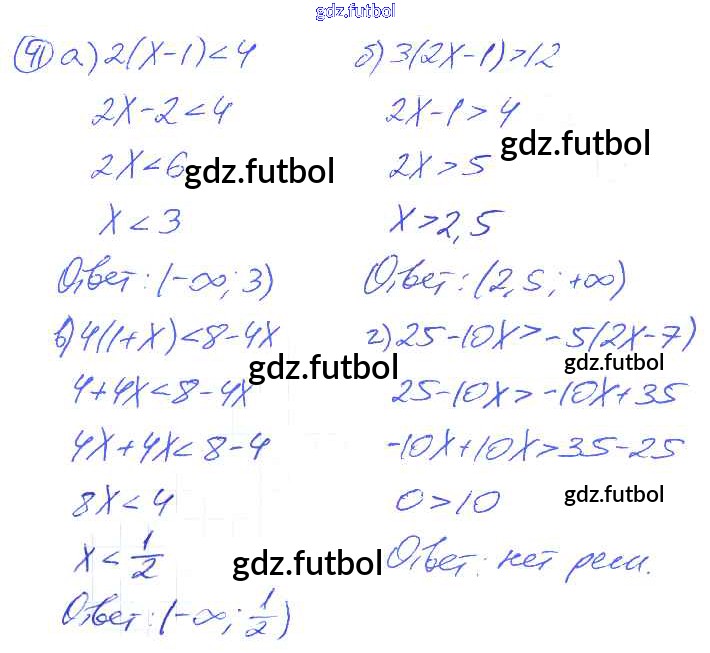 gdz.futbol
41 а) 2(x-1)<4
2x-2<4
2x<6
gdz.futbol
x<3
Ответ: (-∞; 3)
б) 3(2x-1)>12
2x-1>4
gdz.futbol
2x>5
x>2,5
Ответ: (2,5; +∞)
в) 4(1+x)<8-4x
gdz.futbol
4+4x<8-4x
4x+4x<8-4
8x<4
x<1/2
gdz.futbol
Ответ: (-∞; 1/2)
г) 25-10x>-5(2x-7)
gdz.futbol
25-10x>-10x+35
-10x+10x>35-25
0>10
gdz.futbol
Ответ: нет реш.